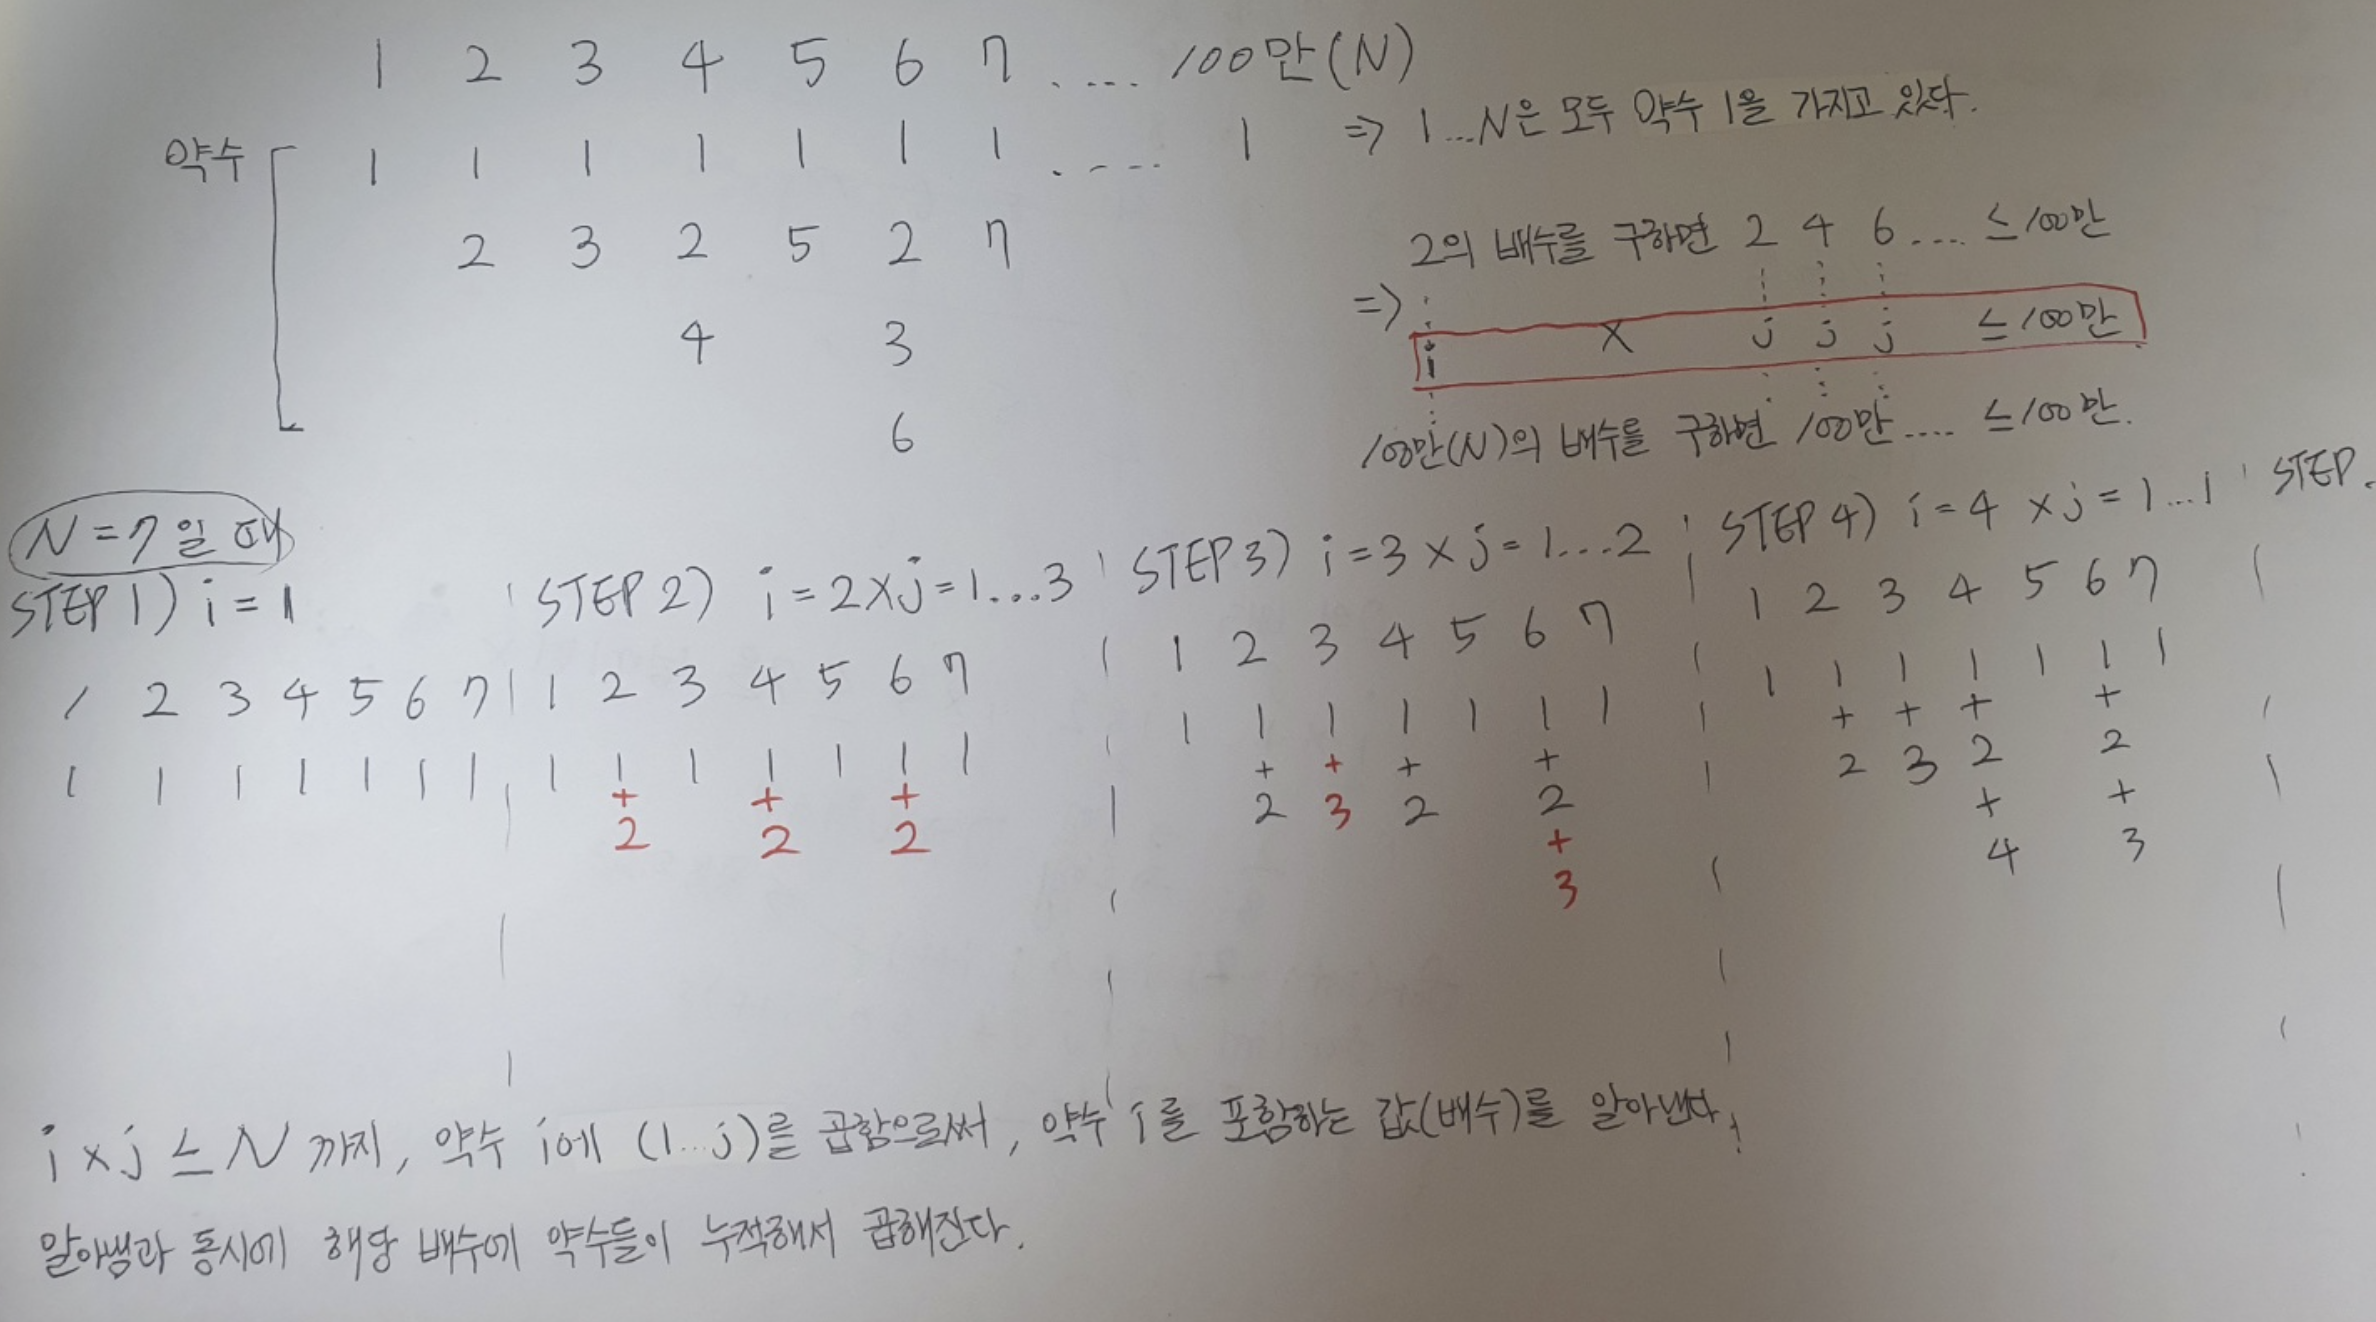 1 2 3 4 5 6 7 ..... 100만(N)
약수 1 1 1 1 1 1 1 ..... 1 => 1...N은 모두 약수 1을 가지고 있다.
2 3 2 5 2 7
4 3
6
2의 배수를 구하면 2 4 6 .... ≤100만
=> i × j j j ≤100만
100만(N)의 배수를 구하면 100만.... ≤100만.
N=7일 때
STEP 1) i=1
1 2 3 4 5 6 7
1 1 1 1 1 1 1
STEP 2) i=2×j=1...3
1 2 3 4 5 6 7
1 1 1 1 1 1 1
+ + +
2 2 2
STEP 3) i=3×j=1...2
1 2 3 4 5 6 7
1 1 1 1 1 1 1
+ + + +
2 3 2 2
+
3
STEP 4) i=4 ×j=1...1
1 2 3 4 5 6 7
1 1 1 1 1 1 1
+ + + +
2 3 2 2
+ +
4 3
STEP.
i×j≤N 까지, 약수 i에 (1...j)를 곱함으로써, 약수 i를 포함하는 값(배수)를 알아낸다,
알아냄과 동시에 해당 배수에 약수들이 누적해서 곱해진다.